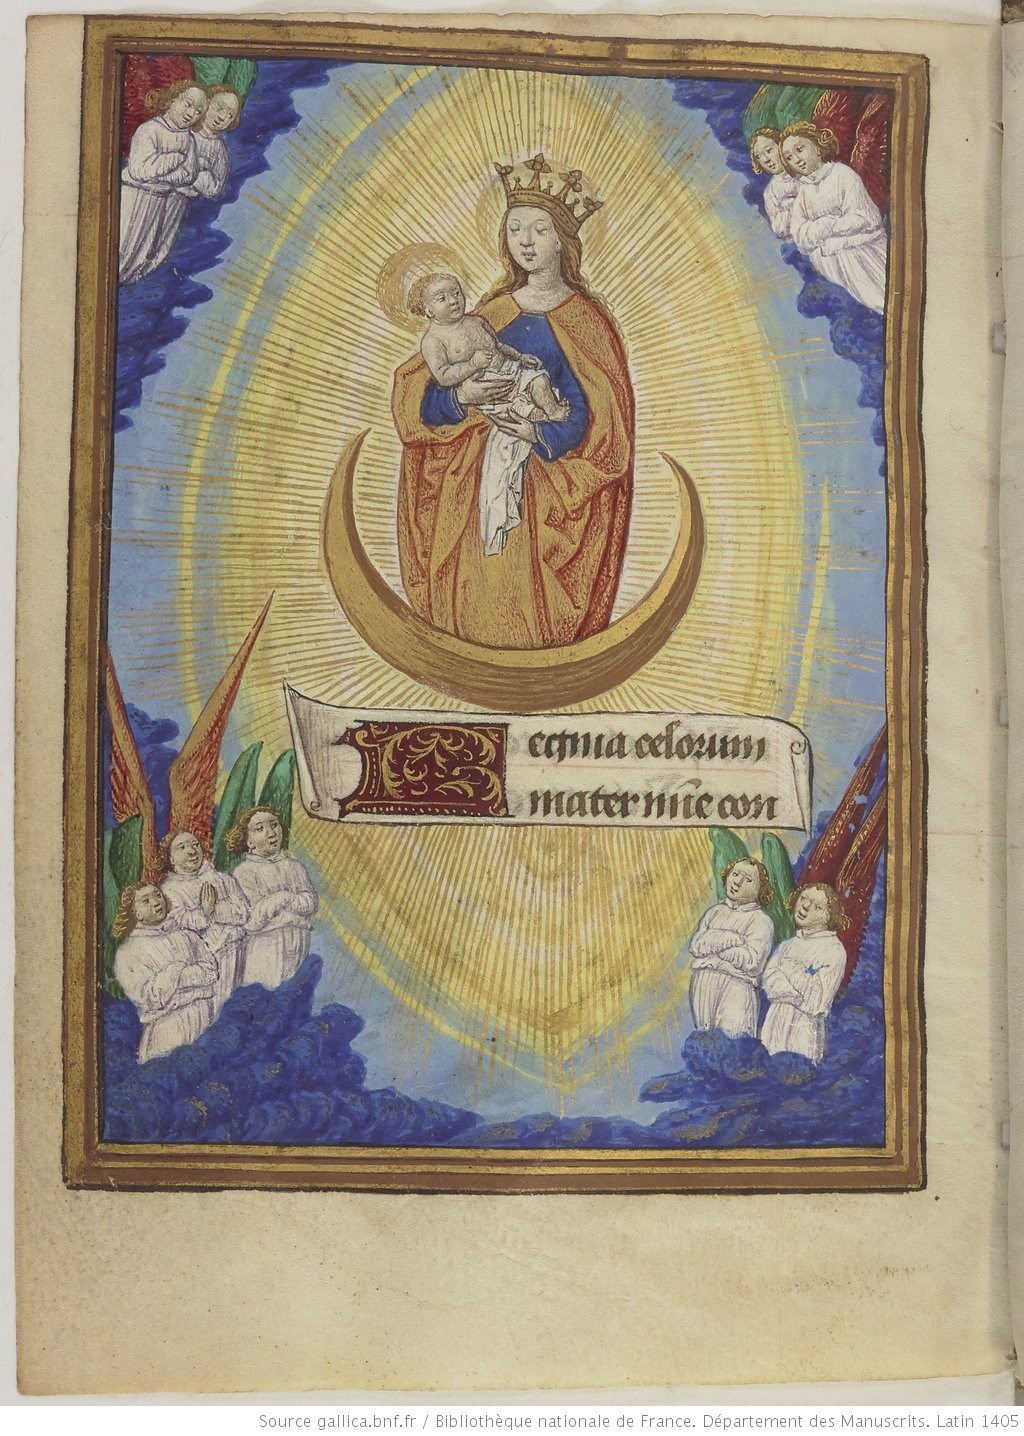 Regina celorum
mater nr̃e con
Source gallica.bnf.fr / Bibliothèque nationale de France. Département des Manuscrits. Latin 1405